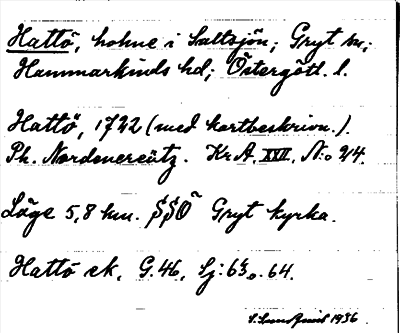 Hattö, holme i Saltsjön; Gryt sn;
Hammarkinds hd; Östergötl. l.
Hattö, 1722 (med kortbeskrivn.).
Ph. Nordencreutz. Kr A. XXII. No 24.
Läge 5,8 km. SSO Gryt kyrka.
Hattö ek. G.46, Sj: 64.
1936